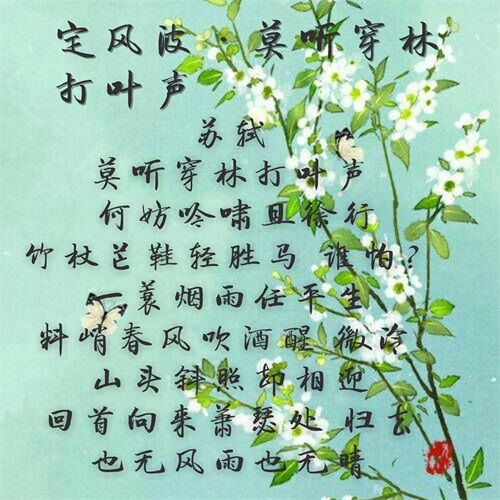 定风波·莫听穿林
打叶声
苏轼
莫听穿林打叶声
何妨吟啸且徐行
竹杖芒鞋轻胜马 谁怕?
一蓑烟雨任平生
料峭春风吹酒醒 微冷
山头斜照却相迎
回首向来萧瑟处 归去
也无风雨也无晴